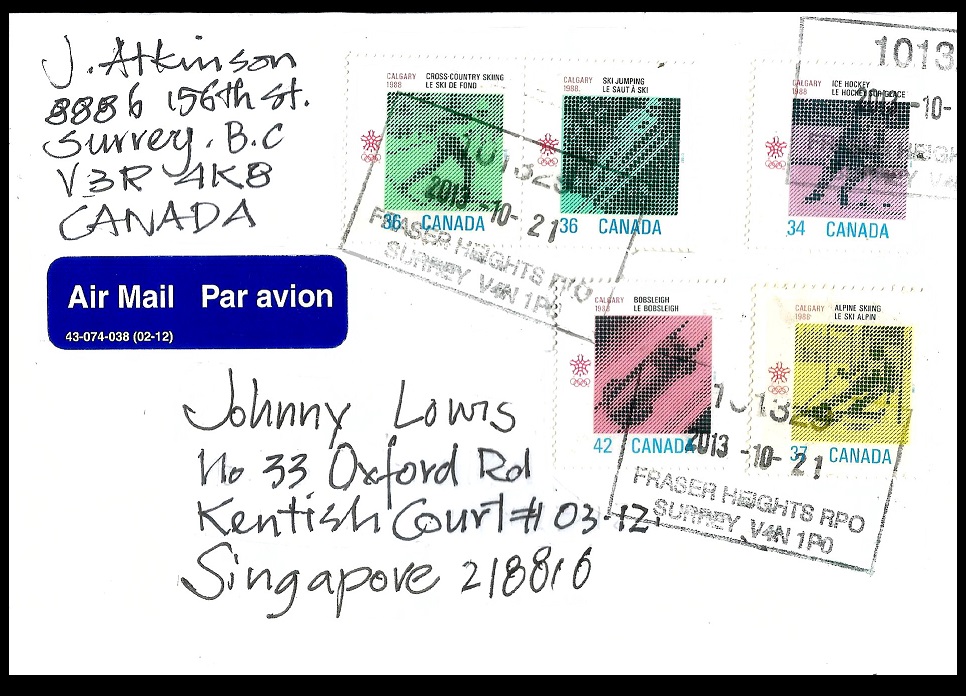 J. Atkinson
8886 156th St.
Surrey. B.C
V3R 4K8
CANADA
Air Mail Par avion
43-074-038 (02-12)
CALGARY
1988
CROSS-COUNTRY SKIING
LE SKI DE FOND
36 CANADA
CALGARY
1988
SKI JUMPING
LE SAUT À SKI
36 CANADA
CALGARY
1988
ICE HOCKEY
LE HOCKEY SUR GLACE
34 CANADA
1013
2013-10-
101323
2013-10-21
FRASER HEIGHTS RPO
SURREY V4N 1P0
CALGARY
1988
BOBSLEIGH
LE BOBSLEIGH
42 CANADA
CALGARY
1988
ALPINE SKIING
LE SKI ALPIN
37 CANADA
101323
2013-10-21
FRASER HEIGHTS RPO
SURREY V4N 1P0
Johnny Lowis
No 33 Oxford Rd
Kentish Court #03-12.
Singapore 218816